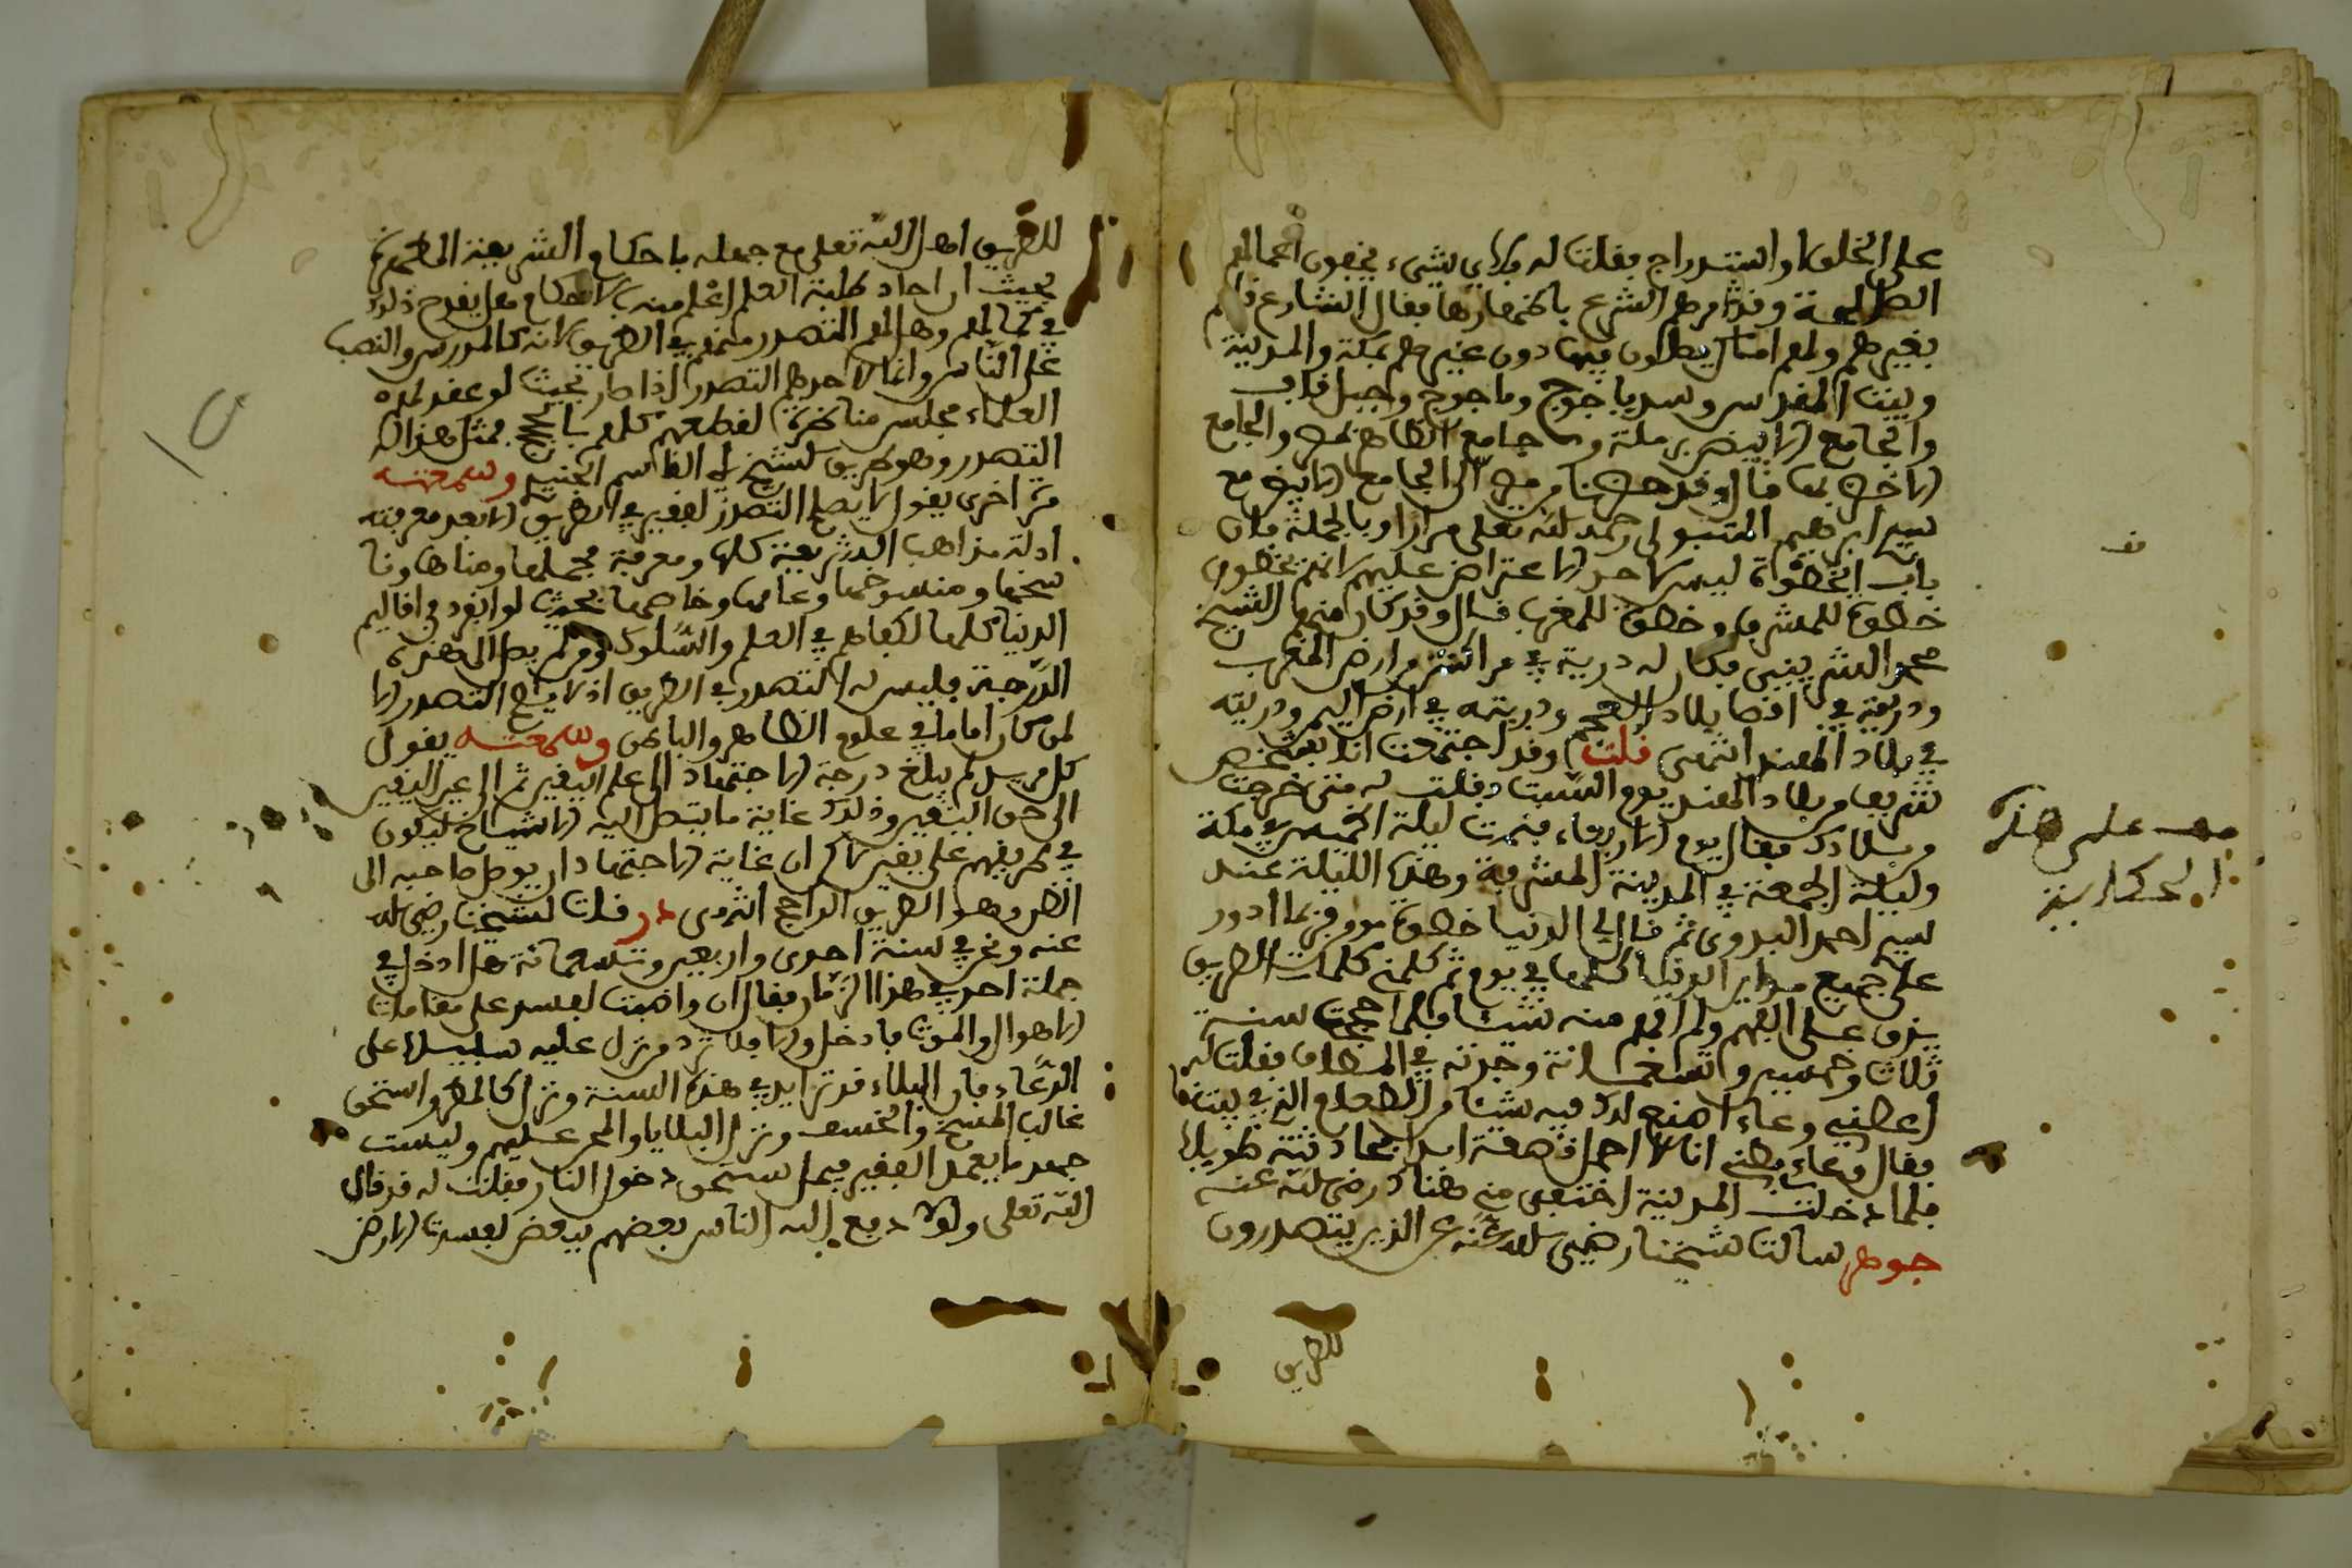 على الخلق او استدراج فقلت له فلاي شيء يخفون اعمالهم
الصالحة وقد امرهم الشرع باظهارها فقال الشارع
بغيرهم ولهم اماكن يصلون فيها دون غيرهم بمكة والمدينة
وبيت المقدس وسد ياجوج وماجوج وجبل قاف
والجامع الابيض برملة و جامع الظاهر بمصر والجامع
الاخضر بها قال وقد من مصر الى الجامع الابيض مع
سيدي ابرهيم المتبولي رحمه الله تعلى مرارا وبالجملة فان
باب الخطوة ليس لاحد الاعتراض عليهم لانهم يخطون
خطوة للمشرق وخطوة للمغرب قال وقد كان منهم الشيخ
محمد الشربيني فكان له ذرية في مراكش من ارض المغرب
وذريته في اقصا بلاد العجم وذريته في ارض اليمن وذريته
في بلاد الهند انتهى قلت وقد اجتمعت انا بشخص
شريف من بلاد الهند يوم السبت فقلت له متى خرجت
من بلادك فقال يوم الاربعاء فنمت ليلة الخميس في مكة
وليلة الجمعة في المدينة المشرفة وهذه الليلة عند
سيدي احمد البدوي ثم قال لي الدنيا خطوة موفق انا ادور
على جميع مداين الدنيا كلها في يوم ثم كلمني كلمات الطريق
يدق على الفهم ولم افهم منه شيئا فلما حججت سنة
ثلاث وخمسين وتسعمائة وجدته في المطاف فقلت له
اعطني وعاء اضع لك فيه شيئا من الطعام الذي بيتنا
فقال وعاءي بطني انا لا احمل قصعة ابدا بحادثته طويلا
فلما دخلت المدينة اختفى مني هناك رضي الله عنه
جوهر سالت شيخنا رضي الله عنه عن الذين يتصدرون
للطريق
قف
قف على هذه
الحكاية
للطريق اهل الله تعلى مع جهله باحكام الشريعة المطهرة
بحيث ان احاد طلبة العلم اعلم منه بالاحكام هل يقدح ذلك
في كمالهم وهل لهم التصدر منهم في الطريق لانه كالمدرس والنصب
على الناس وانما لاحدهم التصدر اذا صار بحيث لو عقد له
العلماء مجلس مناظرة لقطعهم كلهم بالحجج بمثل هذا له
التصدر وهو طريق الشيخ ابي القاسم الجنيد وسمعته
مرة اخرى يقول لا يصلح التصدر لفقير في الطريق الا بعد معرفته
ادلة مذاهب الشريعة كلها ومعرفة مجملها ومناها ونا
سخها ومنسوخها وعامها وخاصها بحيث لو انفرد في اقاليم
الدنيا كلها لكفاهم في العلم والسلوك ومن لم يصل الى هذه
الدرجة فليس له التصدر في الطريق اذ لا يصح التصدر الا
لمن كان اماما في علوم الظاهر والباطن وسمعته يقول
كل من لم يبلغ درجة الاجتهاد الى علم اليقين ثم الى عين اليقين
الى حق اليقين وذلك غاية ما يتصل اليه الاشياخ ليكون
في طريقهم على يقين لاكن ان غاية الاجتهاد ان يوصل صاحبه الى
الظن وهو الطريق الراجح انتهى در قلت لشيخنا رضي الله
عنه ونحن في سنة احدى واربعين وتسعمائة هل ادخل في
جملة احد في هذا الزمان فقال ان واقمت لنفسك على مقامات
الاهوال والموت فادخل والا فلا ترد من نزل عليه سبيلا على
الدعاء فان البلاء قد تزايد في هذه السنة ونزل كالمطر واستحق
غالب المسخ والخسف ونزل البلايا والمحن عليهم وليست
جهد ما يعمل الفقير فيمن استحق دخول النار فقلت له قد قال
الله تعلى ولولا دفع الله الناس بعضهم ببعض لفسدت الارض